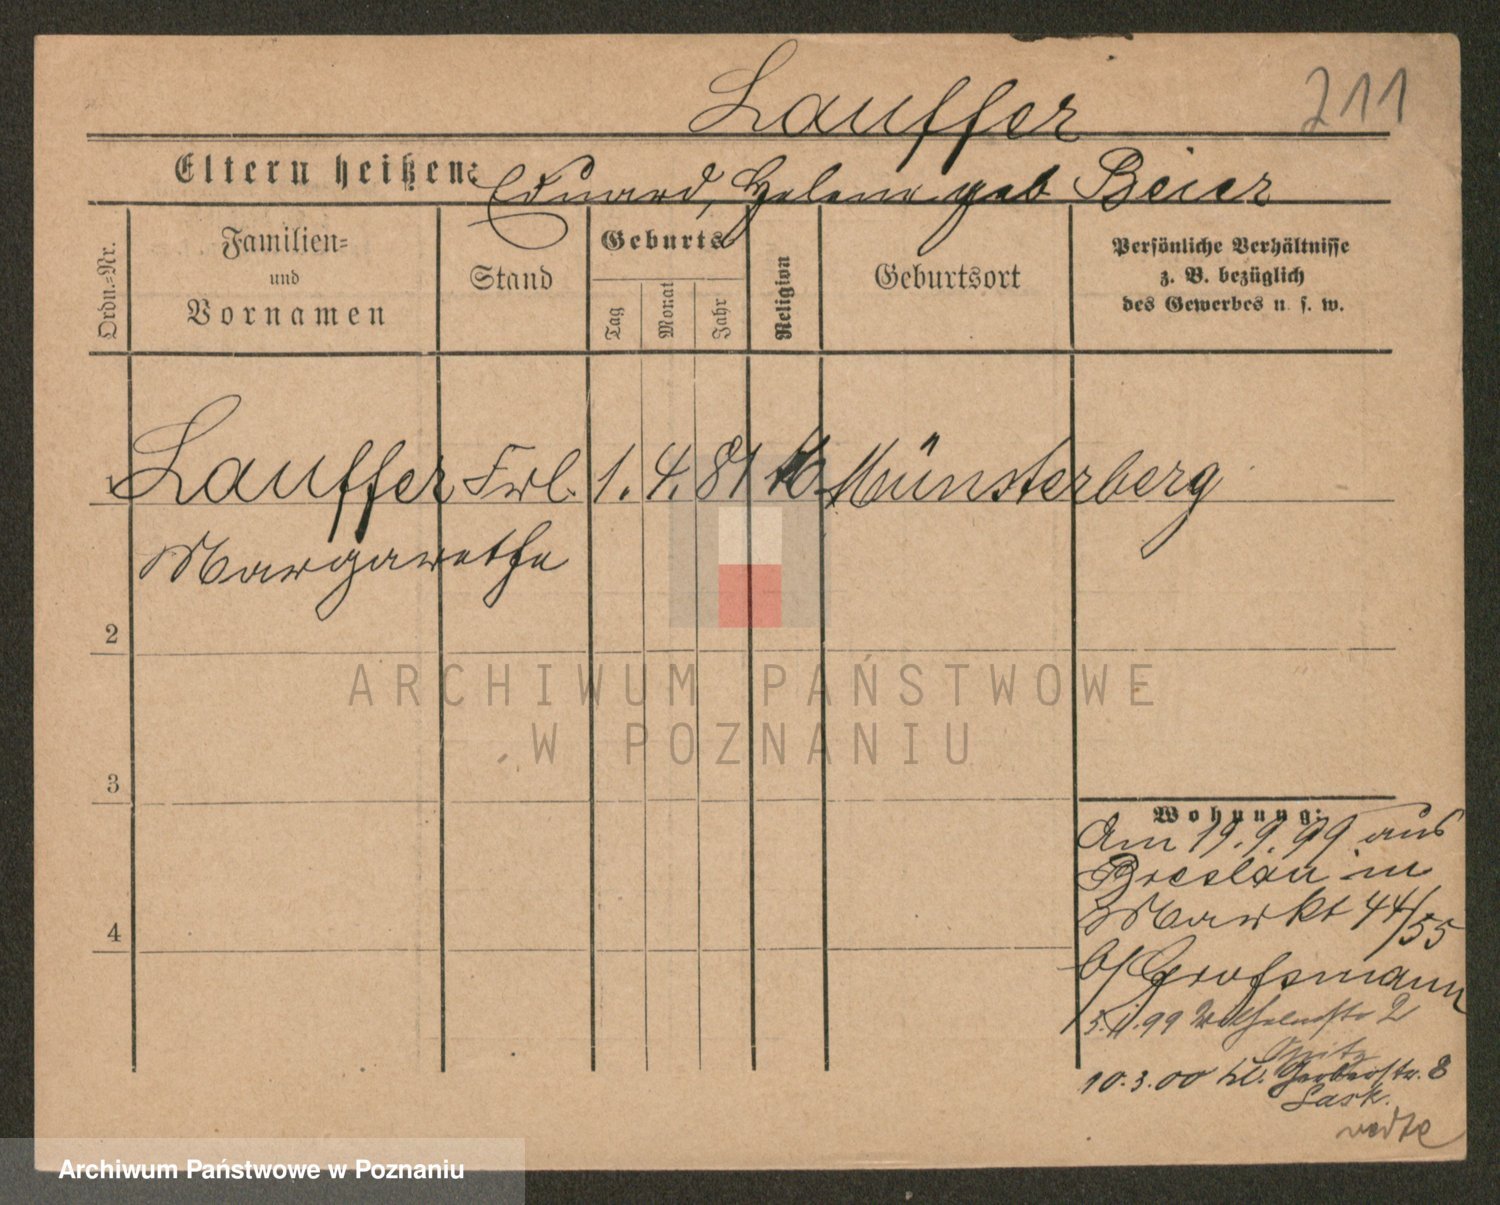 Lauffer 211
Eltern heißen: Eduard, Helene geb Beier
Ordn.=Nr.
Familien=
und
Vornamen
Stand
Geburts
Tag
Monat
Jahr
Religion
Geburtsort
Persönliche Verhältnisse
z. B. bezüglich
des Gewerbes u. s. w.
1 Lauffer Frl. 1. 4. 81 Münsterberg
Margarethe
2
3
4
Wohnung:
Am 19.9.99 aus
Breslau in
Markt 44/55
b/ Großmann
5.11.99 Wilhelmstr 2
Opitz
10.3.00 Kl. Gerberstr. 8
Lask.
ARCHIWUM PAŃSTWOWE
W POZNANIU
Archiwum Państwowe w Poznaniu